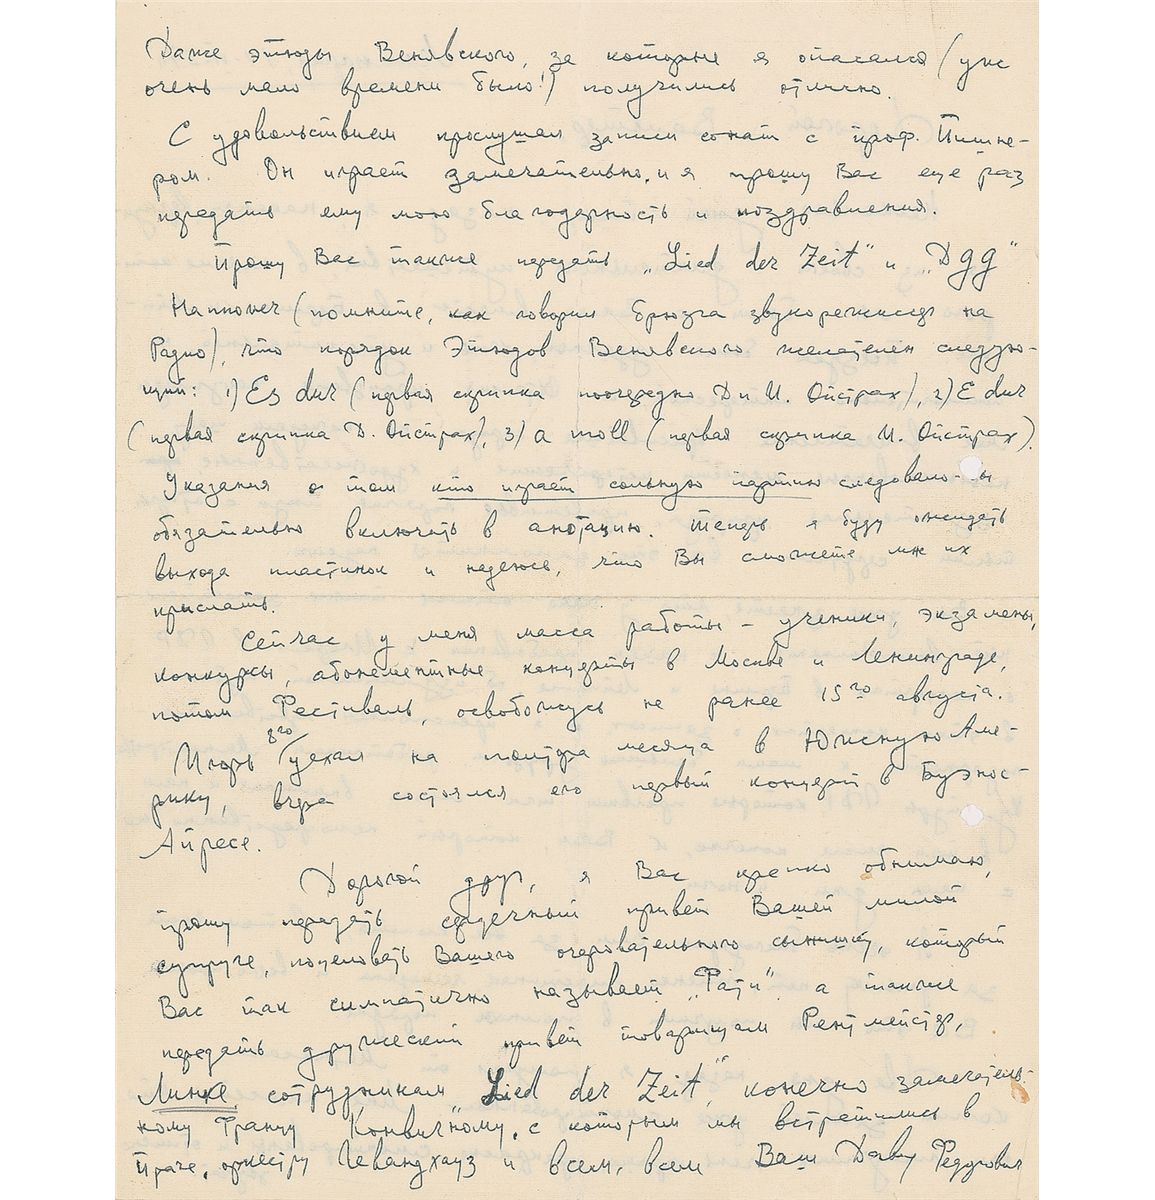 Даже этюды Венявского, за которые я опасался (уж
очень мало времени было!) получились отлично.
С удовольствием прослушал записи сонат с проф. Пишне-
ром. Он играет замечательно, и я прошу Вас еще раз
передать ему мою благодарность и поздравления.
Прошу Вас также передать „Lied der Zeit" и „Dgg"
(помните, как говорил брюзга звукорежиссер на
Радио), что порядок Этюдов Венявского желателен следую-
щий: 1) Es dur (первая скрипка поочередно Д и И. Ойстрах), 2) E dur
(первая скрипка Д. Ойстрах), 3) a moll (первая скрипка И. Ойстрах).
Указания о том кто играет сольную партию следовало бы
обязательно включить в анотацию. Теперь я буду ожидать
выхода пластинок и надеюсь, что Вы сможете мне их
прислать.
Сейчас у меня масса работы – ученики, экзамены,
конкурсы, абонементные концерты в Москве и Ленинграде,
потом Фестиваль, освобожусь не ранее 15го августа.
Игорь 8го уехал на полтора месяца в Южную Аме-
рику, вчра состоялся его первый концерт в Буэнос-
Айресе.
Дорогой друг, я Вас крепко обнимаю,
прошу передать сердечный привет Вашей милой
супруге, поцеловать Вашего очаровательного сынишку, который
Вас так симпатично называет „Фати" а также
передать дружеский привет товарищам Рентмейстер,
Линке, сотрудникам „Lied der Zeit", конечно замечатель-
ному Францу Конвичному, с которым мы встретились в
Праге, оркестру Гевандхауз и всем, всем Ваш Давид Федорович